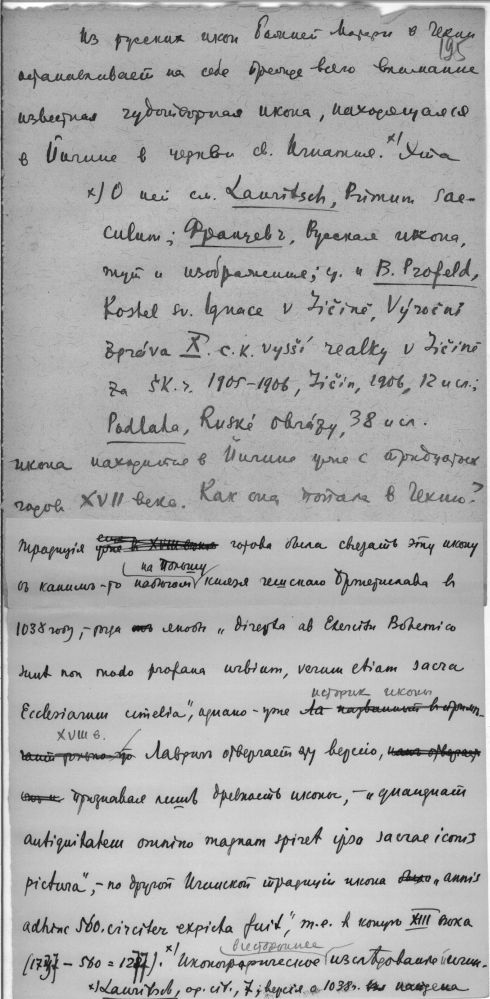 195
Из русских икон Божией Матери в Чехии
останавливает на себе прежде всего внимание
известная чудотворная икона, находящаяся
в Йичине в церкви св. Игнатия. х) Эта
х) О ней см. Lauritsch, Primum sae-
culum; Францевъ, Русская икона,
тут и изображения; ср. и B. Profeld,
Kostel sv. Ignace v Jičíně, Výroční
zpráva X. c. k. vyšší realky v Jičíně
za šk. r. 1905–1906, Jičín, 1906, 12 и сл.;
Podlaha, Ruské obrázy, 38 и сл.
икона находится в Йичине уже с тридцатых
годов XVII века. Как она попала в Чехию?
традиция еще уже в XVIII веке готова была связать эту икону
на Польшу
съ какимъ-то набегом князя чешскаго Бржетислава в
1038 году, – когда якобы „direpta ab Exercitu Bohemico
sunt non modo profana urbium, verum etiam sacra
историк иконы
Ecclesiarum cimelia“, однако уже
XVIII в.
Лаврич отвергает эту версию,
признавая лишь древность иконы, – „quanquam
antiquitatem omnino magnam spiret ipsa sacrae iconis
pictura“, – по другой Ичинской традиции икона было „annis
adhinc 560. circiter expicta fuit“, т.е. к концу XIII века
всестороннее
(1737 – 560 = 1277). х) Иконографическое изследование
х) Lauritsch, op. cit., 7; версия о 1038 г. найдена